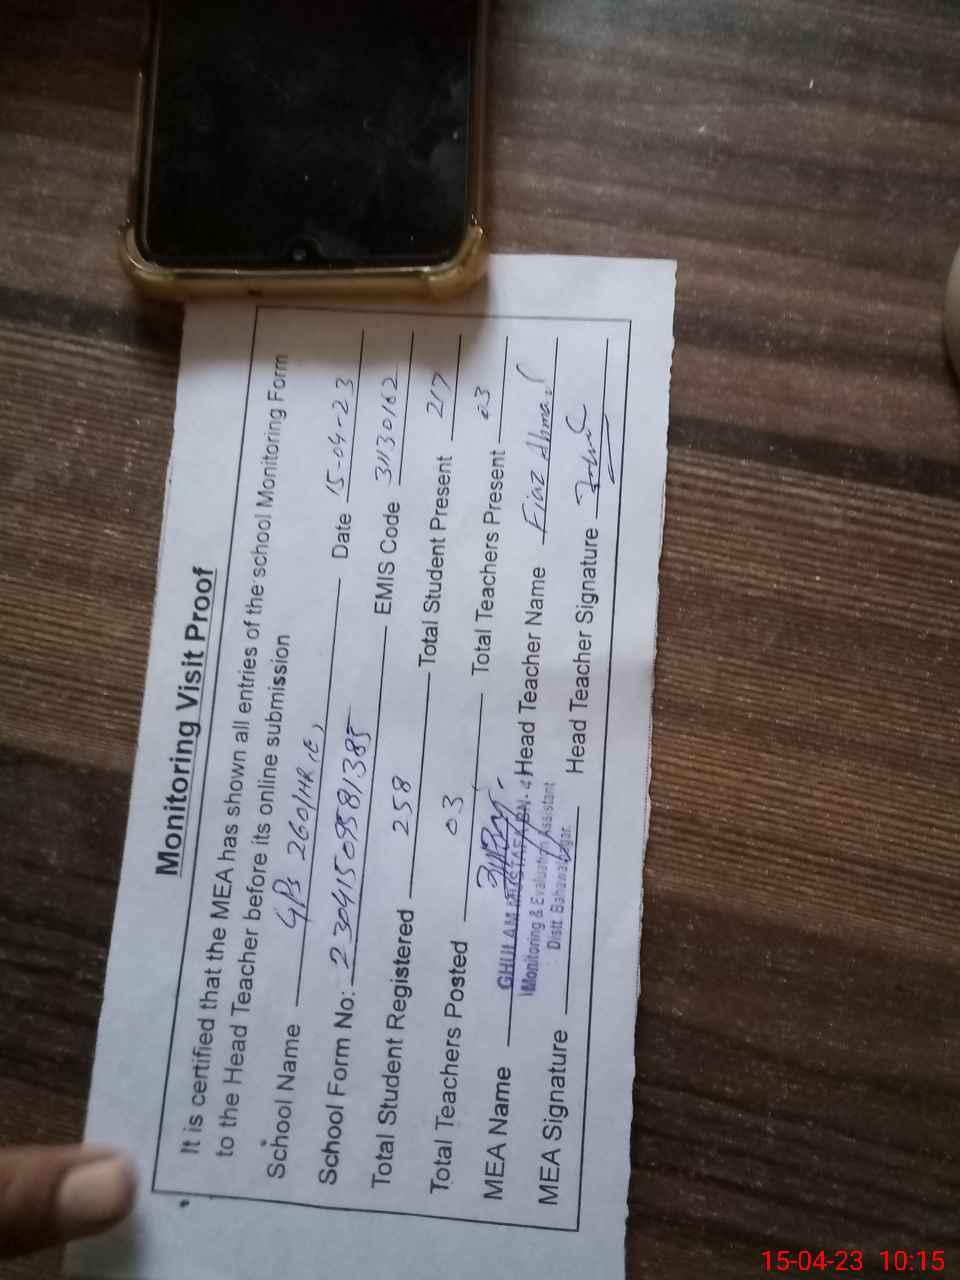 Monitoring Visit Proof
It is certified that the MEA has shown all entries of the school Monitoring Form
to the Head Teacher before its online submission
School Name GPS 260/HR (E) Date 15-04-23
School Form No: 23041509581385 EMIS Code 31130162
Total Student Registered 258 Total Student Present 217
Total Teachers Posted 03 Total Teachers Present 03
MEA Name GHULAM MUSTAFA Head Teacher Name Fiaz Ahmad
Monitoring & Evaluation Assistant
Distt. Bahawalnagar
MEA Signature Head Teacher Signature
15-04-23 10:15